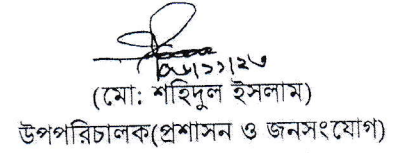 (মো: শহিদুল ইসলাম)
উপপরিচালক(প্রশাসন ও জনসংযোগ)